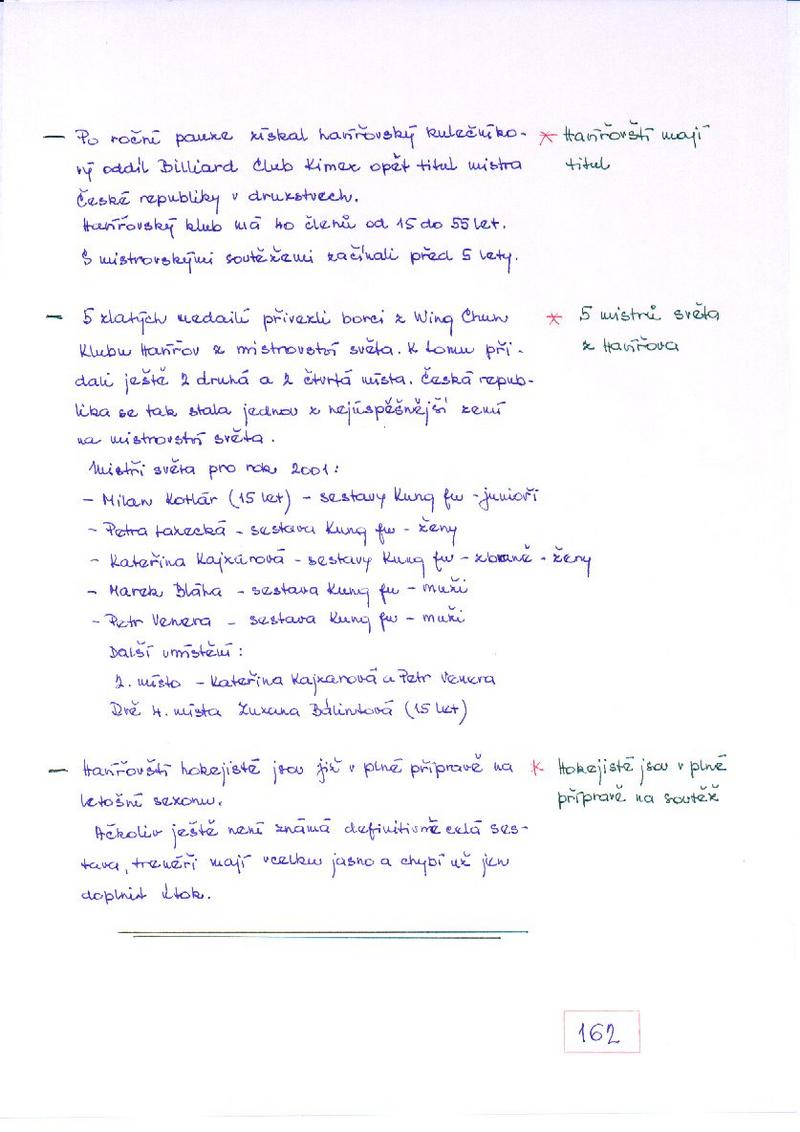 — Po roční pauze získal havířovský kulečníko-
vý oddíl Billiard Club Kimex opět titul mistra
České republiky v družstvech.
Havířovský klub má 40 členů od 15 do 55 let.
S mistrovskými soutěžemi začínali před 5 lety.
* Havířovští mají
titul
— 5 zlatých medailí přivezli borci z Wing Chun
Klubu Havířov z mistrovství světa. K tomu při-
dali ještě 2 druhá a 2 čtvrtá místa. Česká repub-
lika se tak stala jednou z nejúspěšnější zemí
na mistrovství světa.
* 5 mistrů světa
z Havířova
Mistři světa pro rok 2001:
- Milan Kotlár (15 let) - sestavy Kung fu - junioři
- Petra Łazecká - sestava Kung fu - ženy
- Kateřina Kajzarová - sestavy Kung fu - zbraně - ženy
- Marek Bláha - sestava Kung fu - muži
- Petr Venera - sestava Kung fu - muži
Další umístění:
2. místo - Kateřina Kajzarová a Petr Venera
Dvě 4. místa Zuzana Bálintová (15 let)
— Havířovští hokejisté jsou již v plné přípravě na
letošní sezonu.
Ačkoliv ještě není známá definitivně celá ses-
tava, trenéři mají vcelku jasno a chybí už jen
doplnit útok.
* Hokejisté jsou v plné
přípravě na soutěž
162